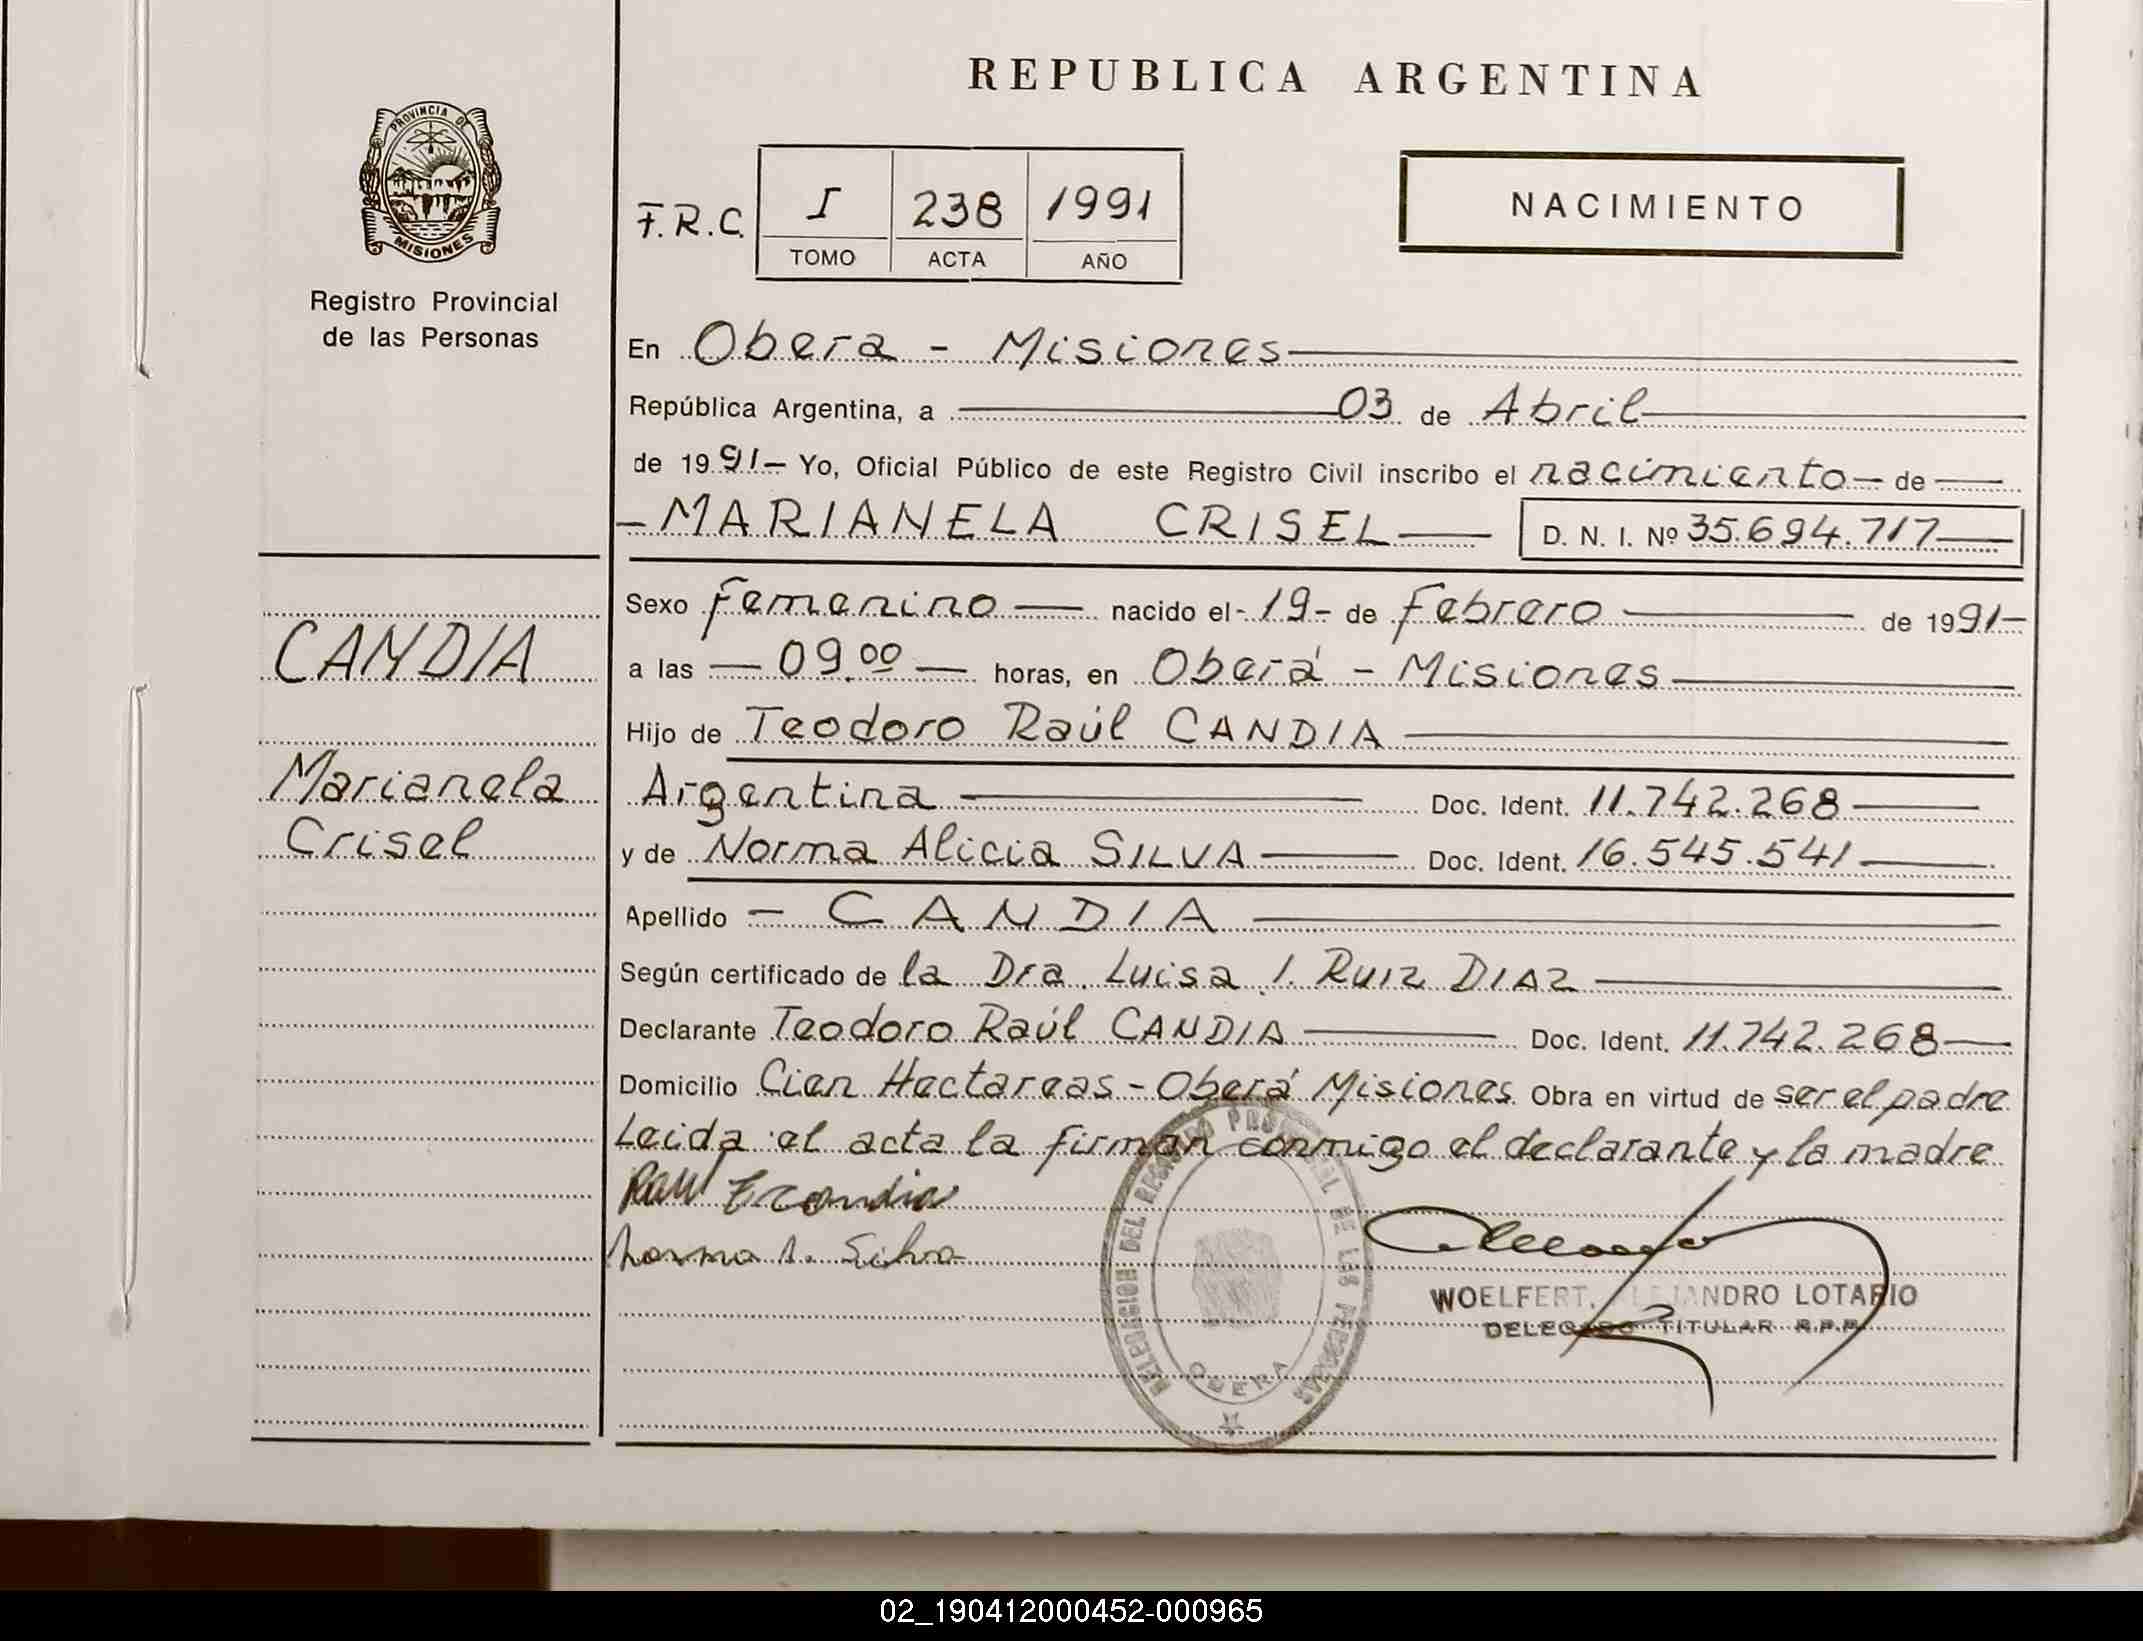 REPUBLICA ARGENTINA
PROVINCIA DE
MISIONES
Registro Provincial
de las Personas
F.R.C. I 238 1991
TOMO ACTA AÑO
NACIMIENTO
En Obera - Misiones
República Argentina, a 03 de Abril
de 1991- Yo, Oficial Público de este Registro Civil inscribo el nacimiento - de
- MARIANELA CRISEL D. N. I. Nº 35.694.717
Sexo Femenino nacido el - 19 - de Febrero de 1991-
CANDIA
a las 09.00 horas, en Oberá - Misiones
Hijo de Teodoro Raúl CANDIA
Marianela
Argentina Doc. Ident. 11.742.268
Crisel
y de Norma Alicia SILVA Doc. Ident. 16.545.541
Apellido - CANDIA
Según certificado de la Dra. Luisa I. RUIZ DIAZ
Declarante Teodoro Raúl CANDIA Doc. Ident. 11.742.268
Domicilio Cien Hectareas - Oberá Misiones Obra en virtud de ser el padre
Leida el acta la firman conmigo el declarante y la madre
Raul T Candia
Norma A. Silva
DELEGACION DEL REGISTRO PROVINCIAL DE LAS PERSONAS
OBERA
WOELFERT, ALEJANDRO LOTARIO
DELEGADO TITULAR R.P.P.
02_190412000452-000965